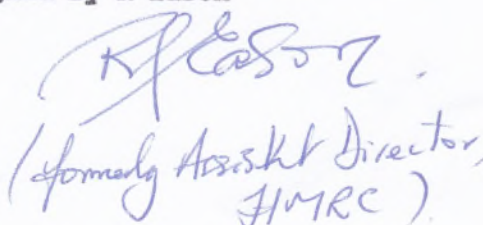 R Eason.
(formerly Assistant Director,
HMRC)